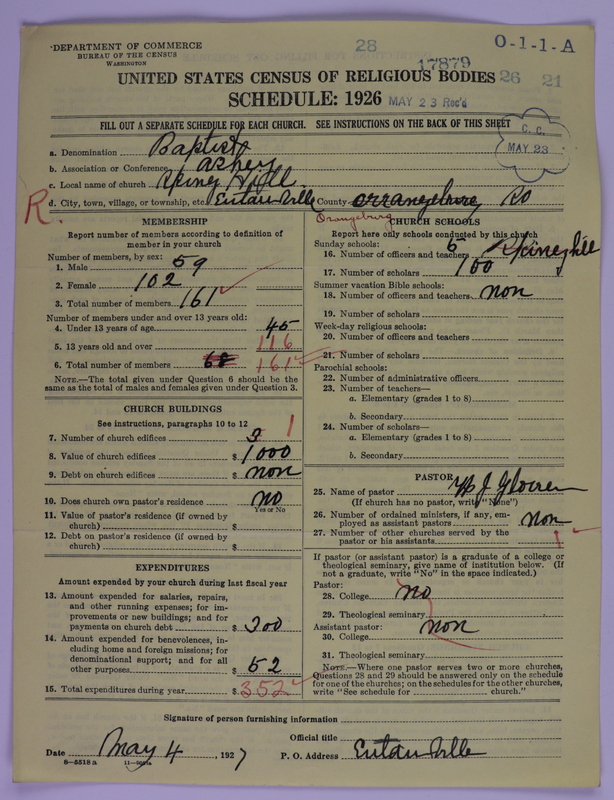 DEPARTMENT OF COMMERCE
BUREAU OF THE CENSUS
WASHINGTON
28
17879
O-1-1-A
UNITED STATES CENSUS OF RELIGIOUS BODIES 26 21
SCHEDULE: 1926 MAY 23 Rec'd
FILL OUT A SEPARATE SCHEDULE FOR EACH CHURCH. SEE INSTRUCTIONS ON THE BACK OF THIS SHEET
C. C.
MAY 23
a. Denomination Baptist
b. Association or Conference
c. Local name of church Hill
d. City, town, village, or township, etc. Eutawville County orrangeburg
R.
Orangeburg
MEMBERSHIP
Report number of members according to definition of
member in your church
Number of members, by sex:
1. Male 59
2. Female 102
3. Total number of members 161
Number of members under and over 13 years old:
4. Under 13 years of age 45
5. 13 years old and over 116
6. Total number of members 68 161
NOTE.—The total given under Question 6 should be the
same as the total of males and females given under Question 3.
CHURCH BUILDINGS
See instructions, paragraphs 10 to 12
7. Number of church edifices 3 1
8. Value of church edifices $ 1000
9. Debt on church edifices $ non
10. Does church own pastor's residence no
Yes or No
11. Value of pastor's residence (if owned by
church) $
12. Debt on pastor's residence (if owned by
church) $
EXPENDITURES
Amount expended by your church during last fiscal year
13. Amount expended for salaries, repairs,
and other running expenses; for im-
provements or new buildings; and for
payments on church debt $ 300
14. Amount expended for benevolences, in-
cluding home and foreign missions; for
denominational support; and for all
other purposes $ 52
15. Total expenditures during year $ 352
CHURCH SCHOOLS
Report here only schools conducted by this church
Sunday schools:
16. Number of officers and teachers 5
17. Number of scholars 100
Summer vacation Bible schools:
18. Number of officers and teachers non
19. Number of scholars
Week-day religious schools:
20. Number of officers and teachers
21. Number of scholars
Parochial schools:
22. Number of administrative officers
23. Number of teachers—
a. Elementary (grades 1 to 8)
b. Secondary
24. Number of scholars—
a. Elementary (grades 1 to 8)
b. Secondary
PASTOR
25. Name of pastor J Glover
(If church has no pastor, write "None")
26. Number of ordained ministers, if any, em-
ployed as assistant pastors non
27. Number of other churches served by the
pastor or his assistants 1
If pastor (or assistant pastor) is a graduate of a college or
theological seminary, give name of institution below. (If
not a graduate, write "No" in the space indicated.)
Pastor:
28. College no
29. Theological seminary
Assistant pastor: non
30. College
31. Theological seminary
NOTE.—Where one pastor serves two or more churches,
Questions 28 and 29 should be answered only on the schedule
for one of the churches; on the schedules for the other churches,
write "See schedule for church."
Signature of person furnishing information
Official title
Date May 4, 1927 P. O. Address Eutawville
8-5518 a